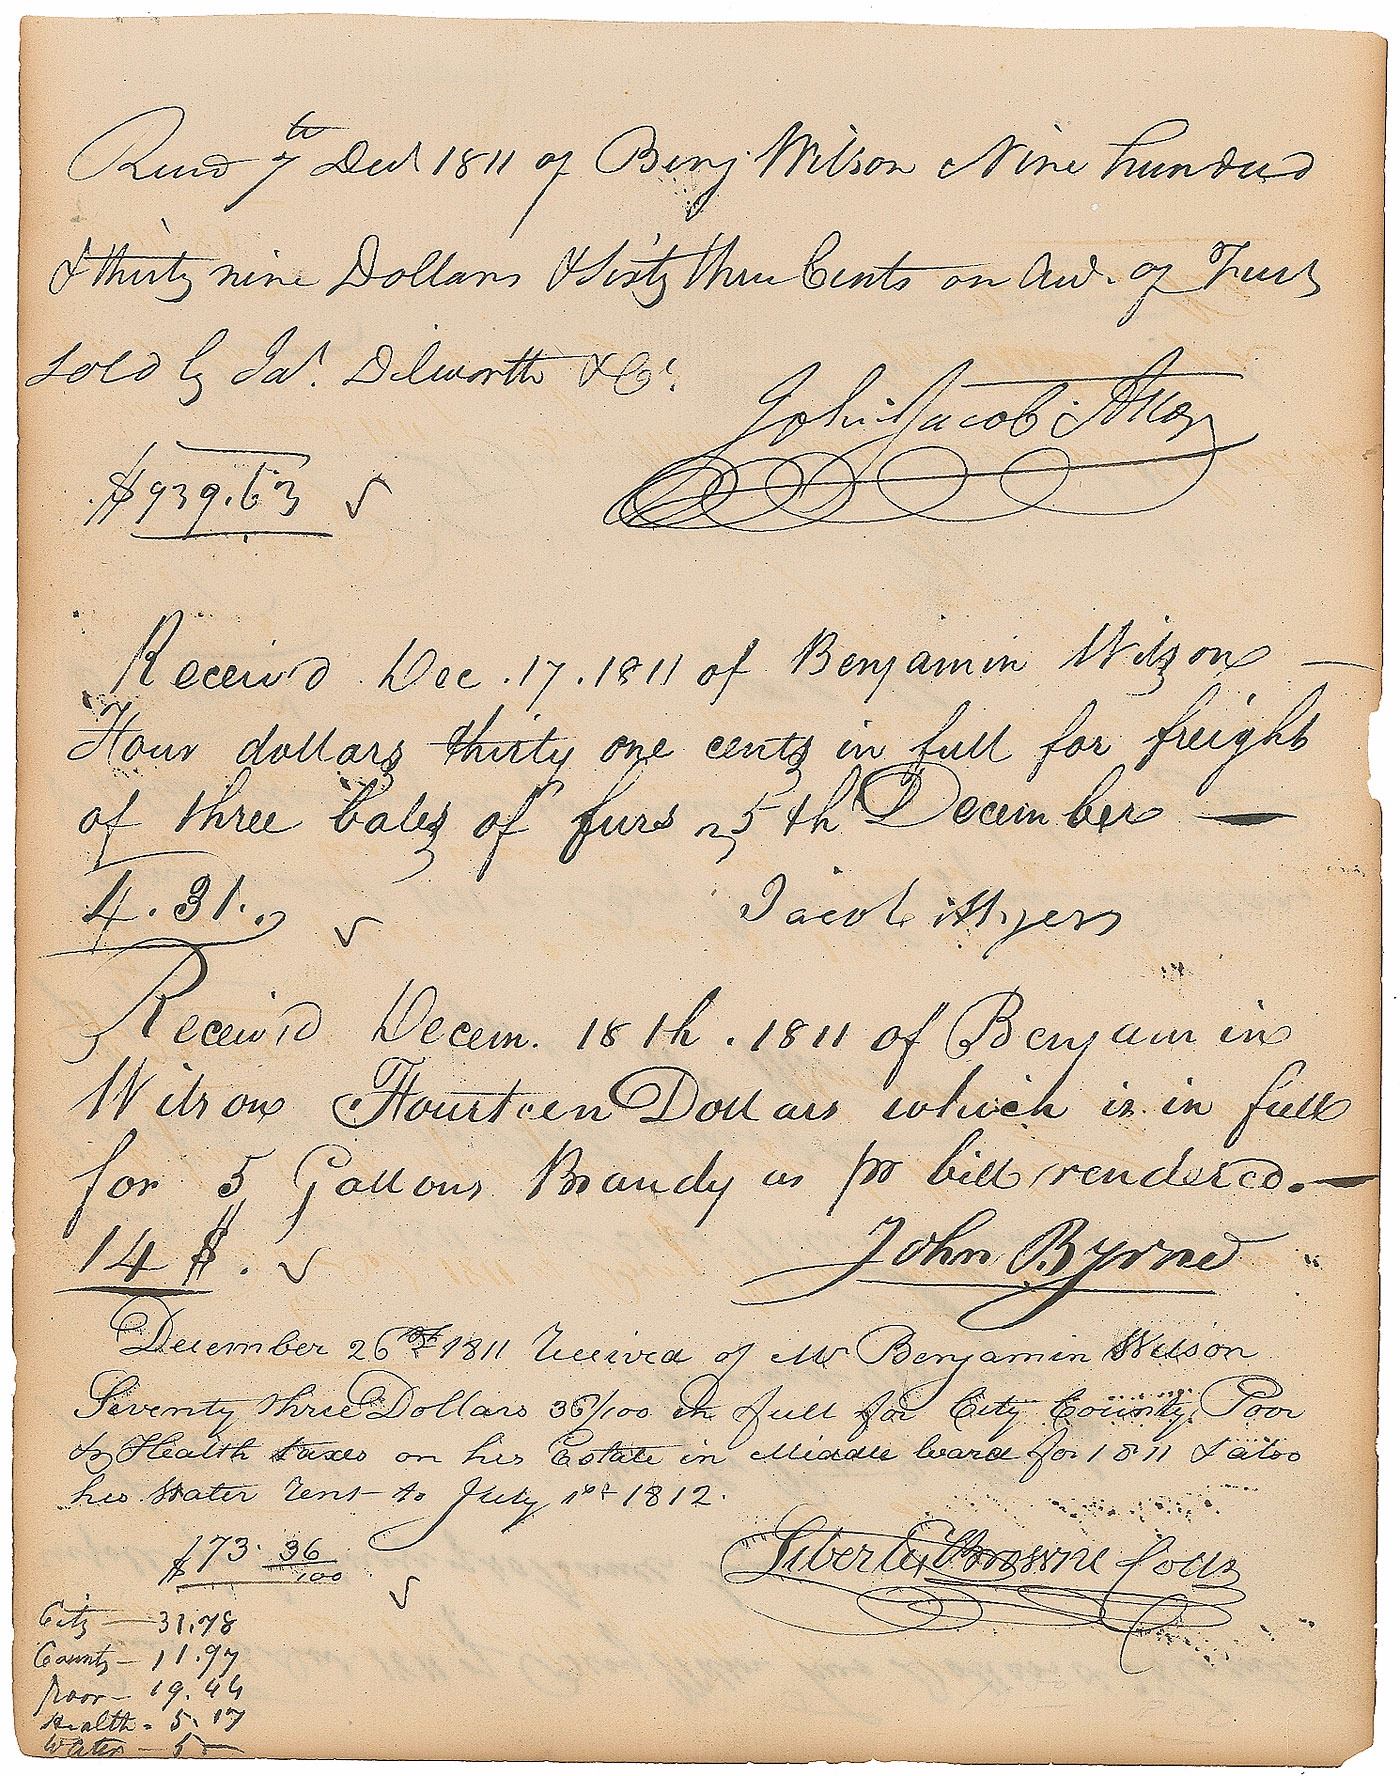 Recd 7th Decr 1811 of Benj Wilson Nine hundred
& thirty nine Dollars & Sixty three Cents on Acct. of Furs
sold by Jas. Dilworth & Co.
John Jacob Astor
$939.63
Receiv'd Dec. 17. 1811 of Benjamin Wilson
Four dollars thirty one cents in full for freight
of three bales of furs 5th December
4.31.
Jacob Myers
Receiv'd Decem. 18th. 1811 of Benjamin
Wilson Fourteen Dollars which is in full
for 5 Gallons Brandy as pr bill rendered.
14 $.
John Byrne
December 26th 1811 Received of Mr Benjamin Wilson
Seventy three Dollars 36/100 in full for City County Poor
& Health taxes on his Estate in Middle Ward for 1811 & also
his Water rent to July 1st 1812.
$73. 36/100
Liberty Browne Collr
City — 31.78
County — 11.97
Poor — 19.44
Health - 5.17
Water — 5 —